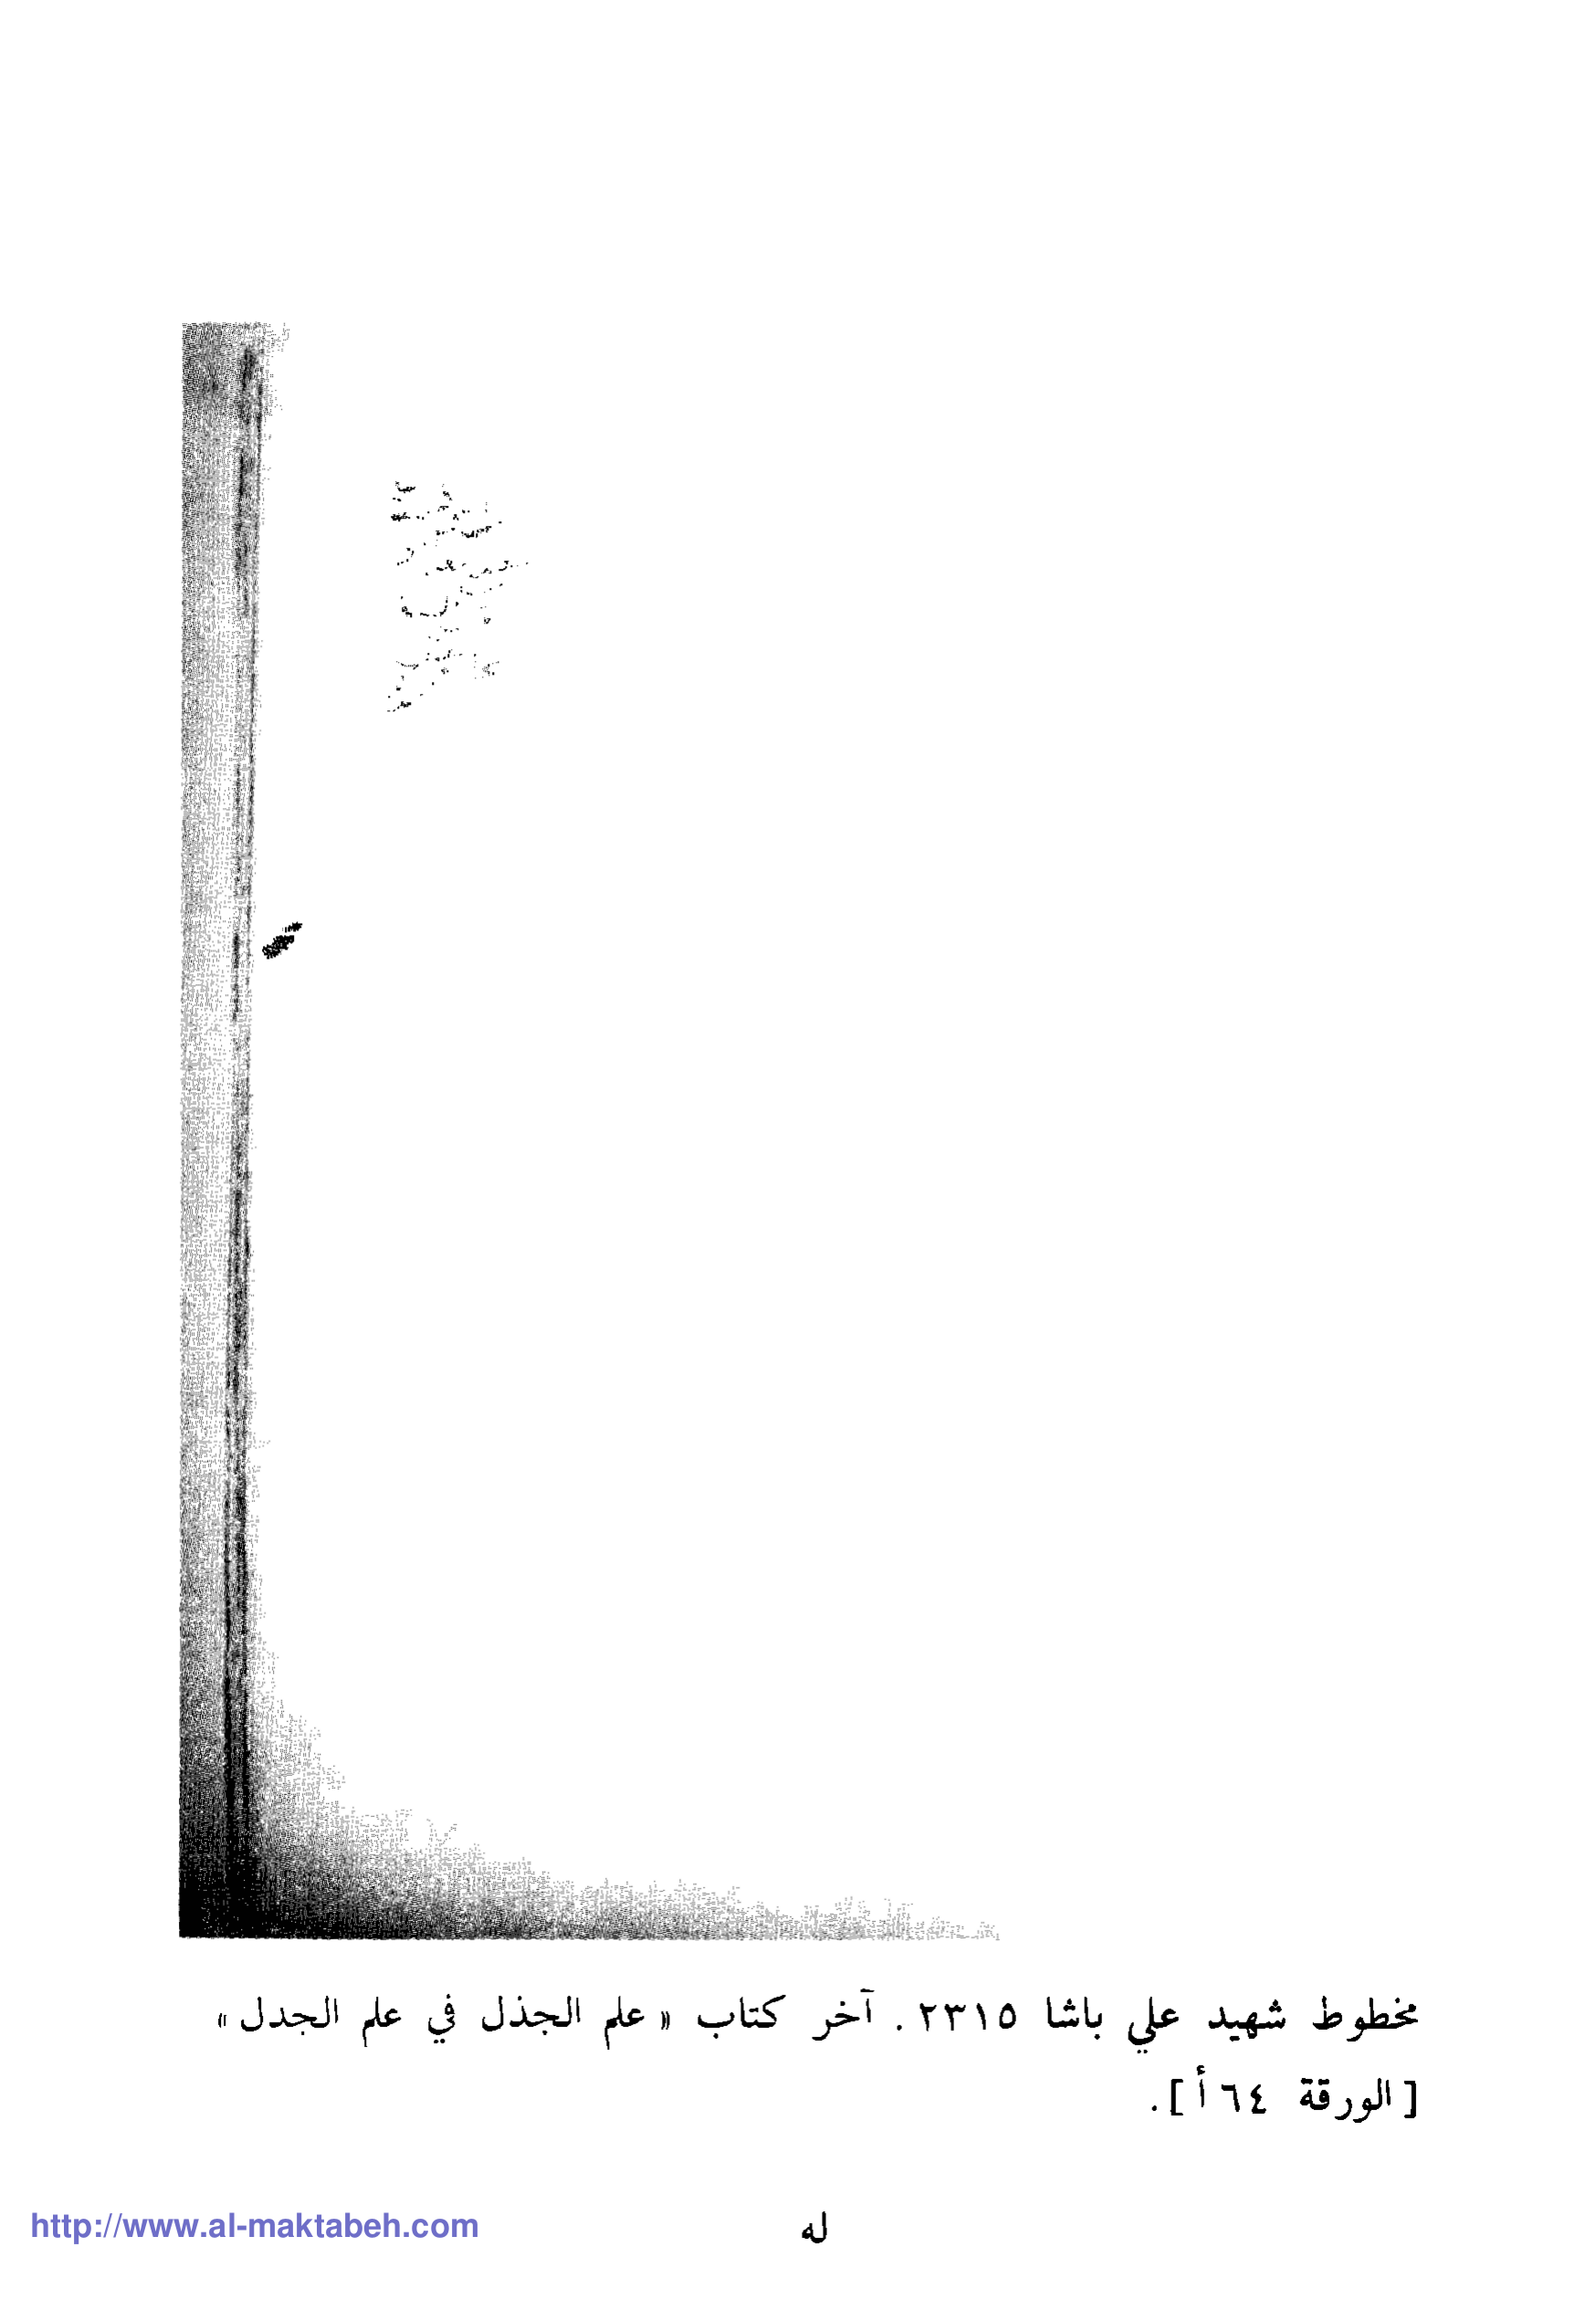 مخطوط شهيد علي باشا ٢٣١٥ . آخر كتاب « علم الجذل في علم الجدل »
[ الورقة ٦٤ أ ] .
له
http://www.al-maktabeh.com